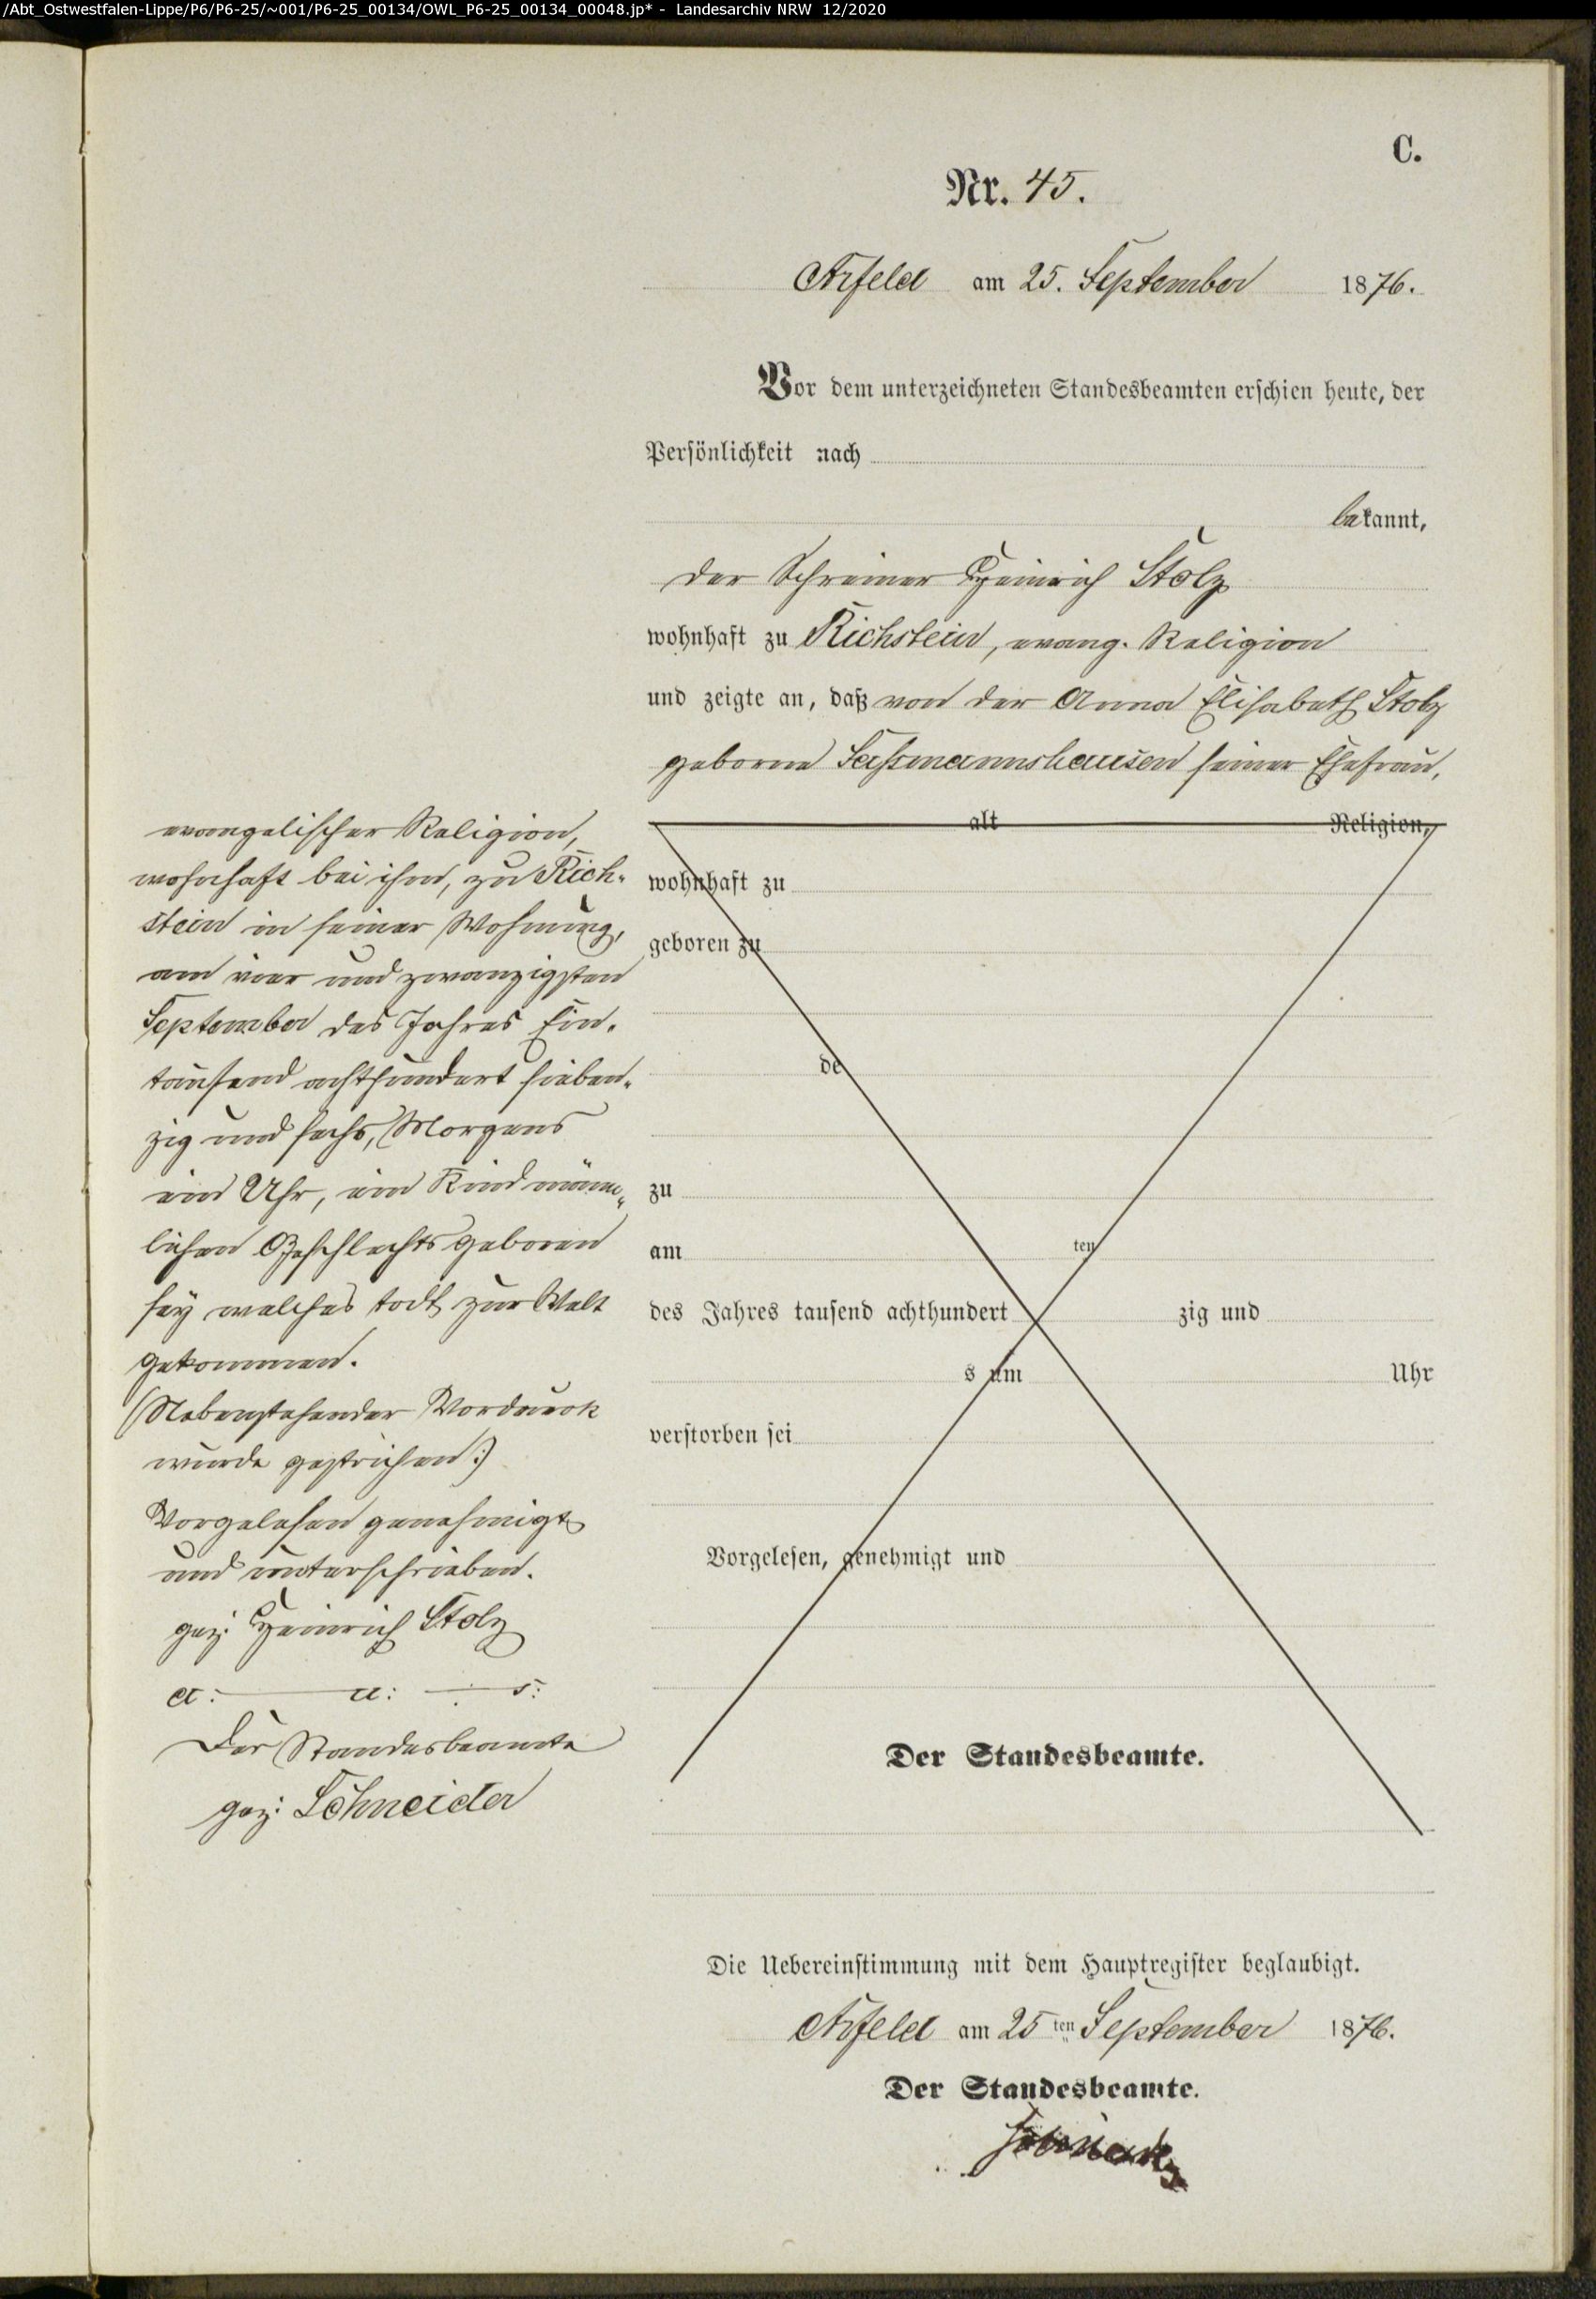 /Abt_Ostwestfalen-Lippe/P6/P6-25/~001/P6-25_00134/OWL_P6-25_00134_00048.jp* - Landesarchiv NRW 12/2020
C.
Nr. 45.
Arfeld am 25. September 1876.
Vor dem unterzeichneten Standesbeamten erschien heute, der
Persönlichkeit nach
bekannt,
der Schreiner Heinrich Stolz
wohnhaft zu Richstein, evang. Religion
und zeigte an, daß von der Anna Elisabeth Stolz
geborne Saßmannshausen seiner Ehefrau,
evangelischer Religion,
wohnhaft bei ihm, zu Rich-
stein in seiner Wohnung,
am vier und zwanzigsten
September des Jahres Ein-
tausend achthundert sieben-
zig und sechs, Morgens
ein Uhr, ein Kind männ-
lichen Geschlechts geboren
sey welches todt zur Welt
gekommen.
(Nebenstehender Vordruck
wurde gestrichen:)
Vorgelesen genehmigt
und unterschrieben.
gez: Heinrich Stolz
a: u: s:
Der Standesbeamte
gez: Schneider
alt Religion,
wohnhaft zu
geboren zu
de
zu
am ten
des Jahres tausend achthundert zig und
s um Uhr
verstorben sei
Vorgelesen, genehmigt und
Der Standesbeamte.
Die Uebereinstimmung mit dem Hauptregister beglaubigt.
Arfeld am 25 ten September 1876.
Der Standesbeamte.
Schneider